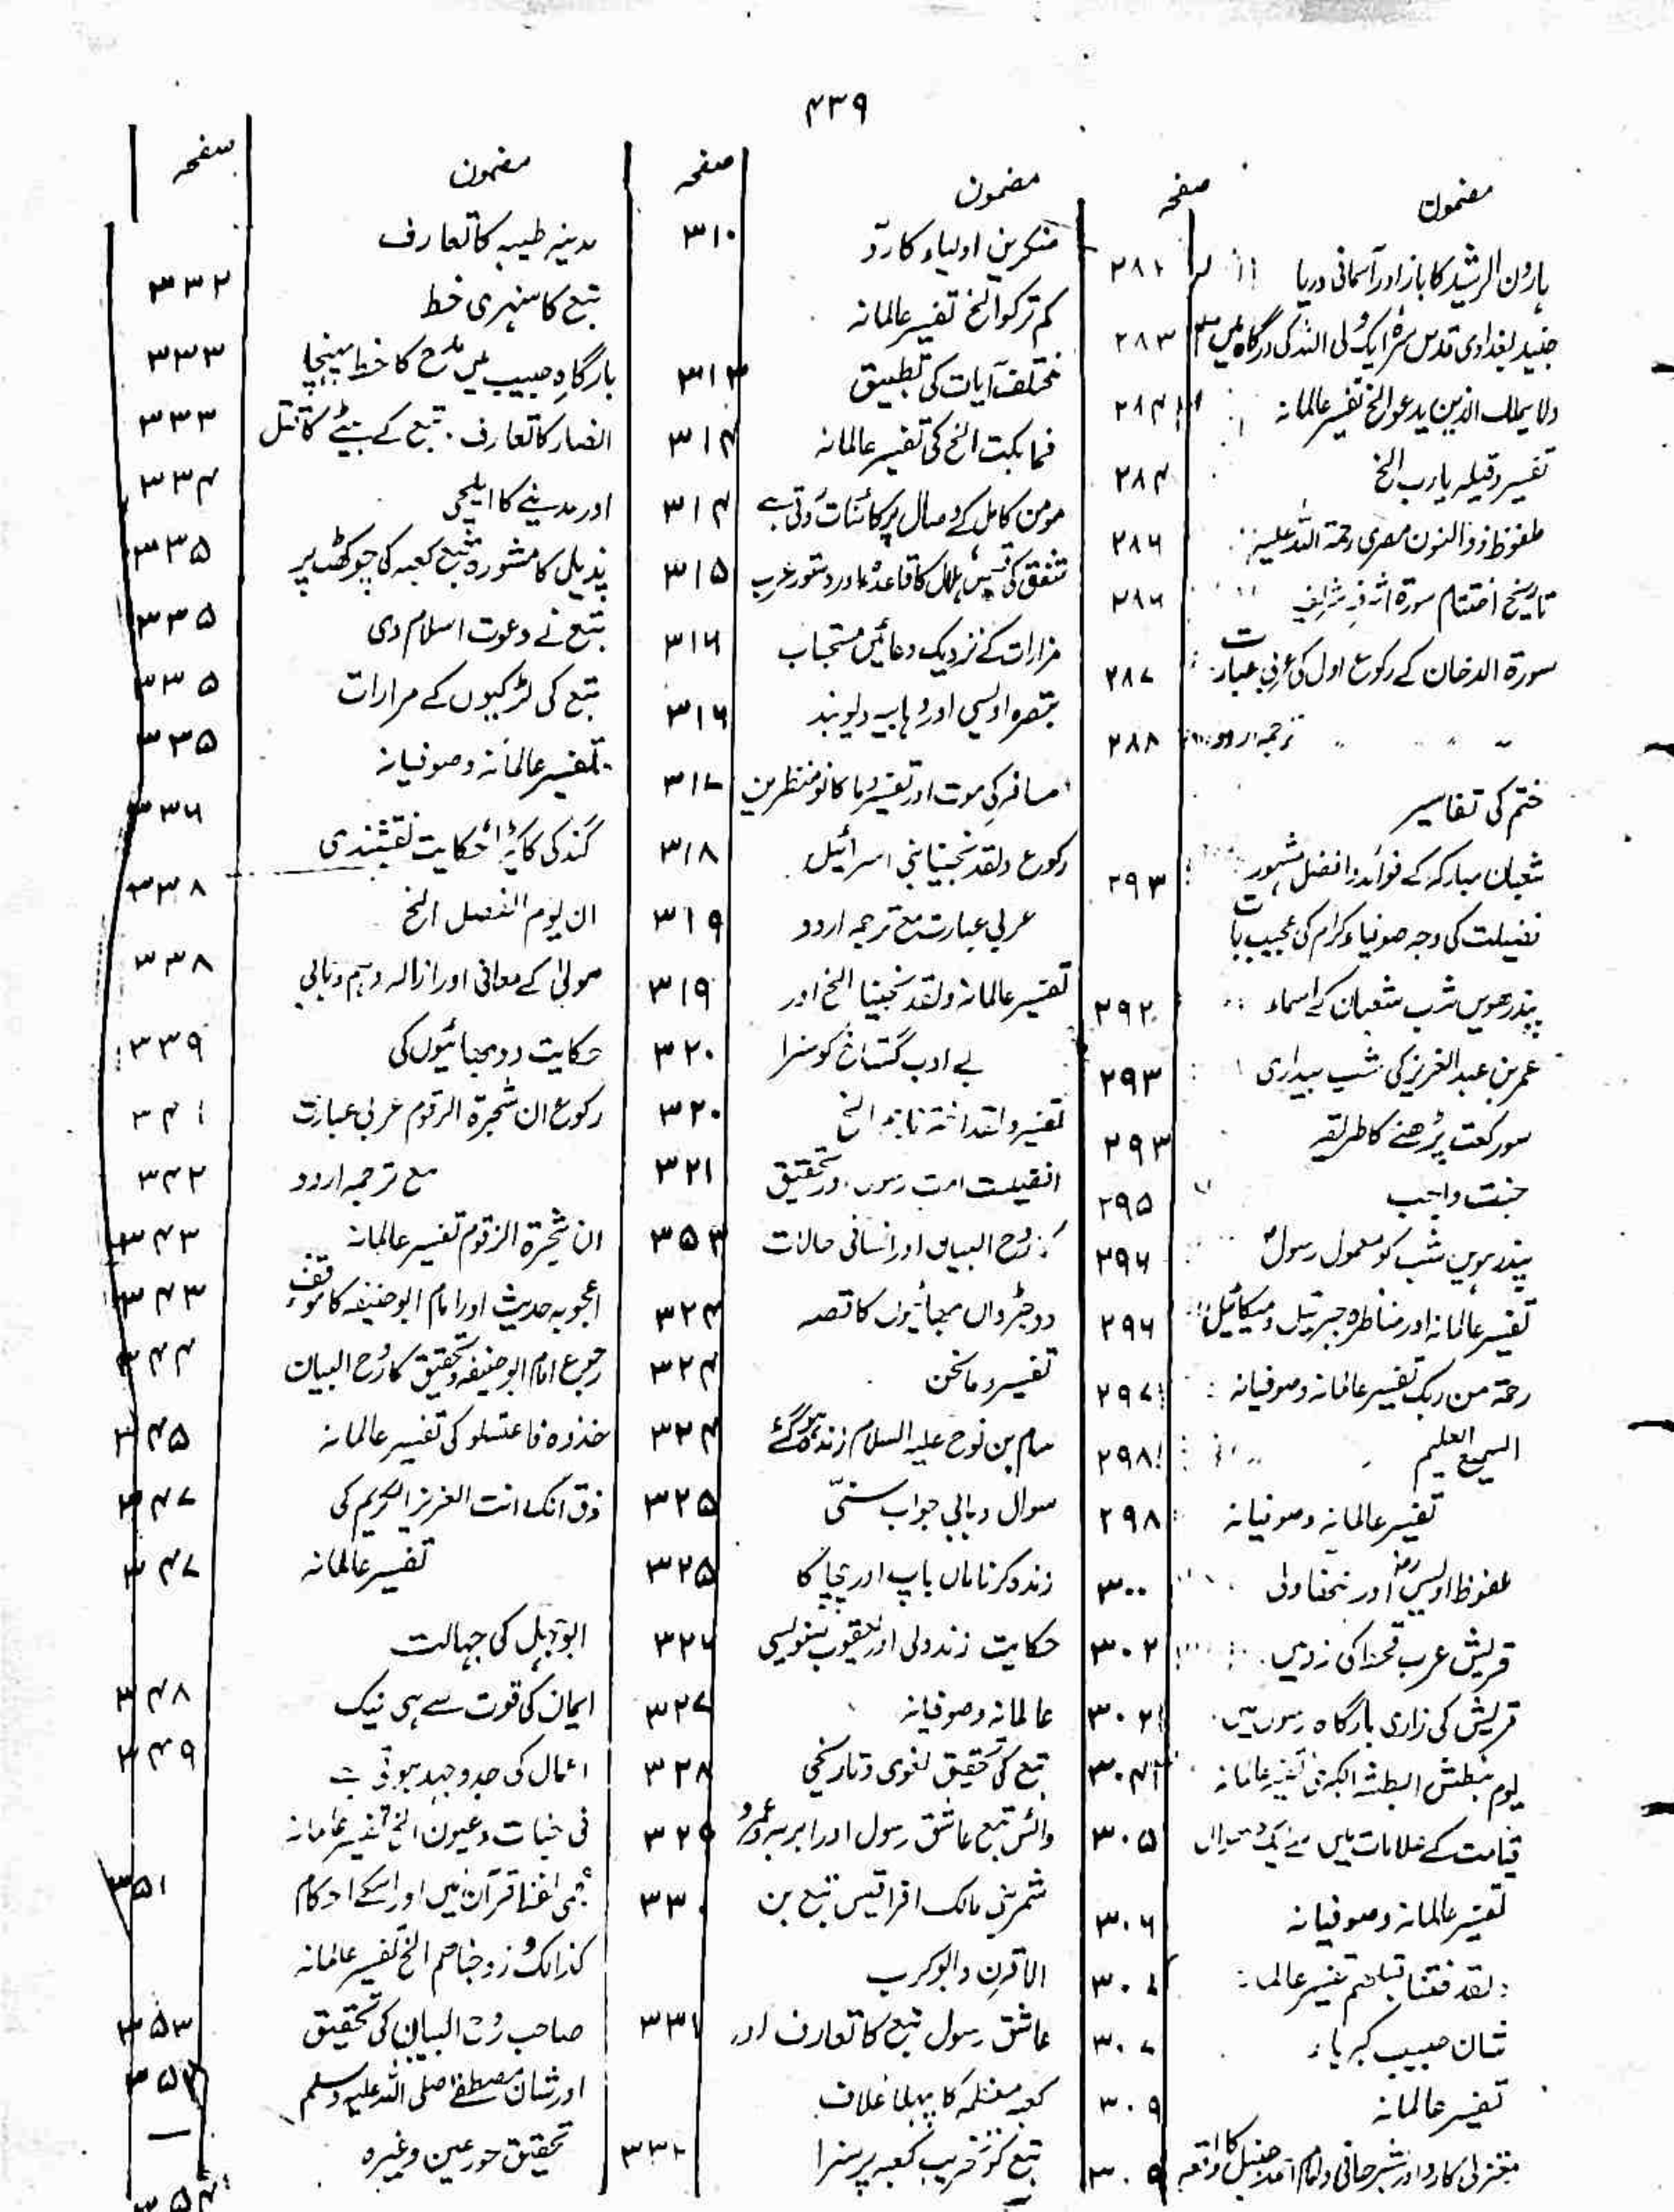 ۴۳۹
مضمون صفحہ
ہارون الرشید کا باز اور آسمانی دریا ۲۸۲
جنید بغدادی قدس سرہ ایک ولی اللہ کی درگاہ میں ۲۸۳
ولا یملک الذین یدعو الخ تفسیر عالمانہ ۲۸۴
تفسیر وقیلہ یارب الخ ۲۸۴
ملفوظ ذوالنون مصری رحمۃ اللہ علیہ ۲۸۶
تاریخ اختتام سورۃ شریف ۲۸۶
سورۃ الدخان کے رکوع اول کی عربی عبارت ۲۸۷
〃 〃 〃 〃 ترجمہ اردو ۲۸۸
ختم کی تفاسیر
شعبان مبارک کے فوائد و افضل مشہور ۲۹۳
فضیلت کی وجہ صوفیاء کرام کی عجیب بات
پندرھویں شب شعبان کے اسماء ۲۹۲
عمر بن عبدالعزیز کی شب بیداری ۲۹۳
سو رکعت پڑھنے کا طریقہ ۲۹۳
جنت واجب ۲۹۵
پندرہویں شب کو معمول رسول ۲۹۶
تفسیر عالمانہ اور مناظرہ جبرئیل و میکائیل ۲۹۶
رحمۃ من ربک تفسیر عالمانہ و صوفیانہ ۲۹۷
السمیع العلیم 〃 〃 ۲۹۸
تفسیر عالمانہ و صوفیانہ ۲۹۸
ملفوظ اویسی اور ۳۰۰
قریش عرب قحط کی زد میں ۳۰۲
قریش کی زاری بارگاہ رسول میں ۳۰۲
یوم نبطش البطشۃ الکبریٰ تفسیر عالمانہ ۳۰۴
قیامت کے علامات میں سے ایک دھواں ۳۰۵
تفسیر عالمانہ و صوفیانہ ۳۰۶
ولقد فتنا قبلھم تفسیر عالمانہ
شان حبیب کبریاء ۳۰۷
تفسیر عالمانہ ۳۰۹
معتزلی کا رد اور بشر حافی و امام احمد حنبل کا واقعہ ۳۰۹
مضمون صفحہ
منکرین اولیاء کا ردّ ۳۱۰
کم ترکوا الخ تفسیر عالمانہ
مختلف آیات کی تطبیق ۳۱۳
فما بکت الخ کی تفسیر عالمانہ ۳۱۴
مومن کامل کے وصال پر کائنات روتی ہے ۳۱۴
شفق کی قسمیں ہلال کا قاعدہ اور دستور عرب ۳۱۵
مزارات کے نزدیک دعائیں مستجاب ۳۱۶
تبصرہ اویسی اور وہابیہ دیوبند ۳۱۶
مسافر کی موت اور تفسیر وما کانو منظرین ۳۱۷
رکوع ولقد نجینا بنی اسرائیل ۳۱۸
عربی عبارت مع ترجمہ اردو ۳۱۹
تفسیر عالمانہ ولقد نجینا الخ اور ۳۱۹
بے ادب گستاخ کو سزا ۳۲۰
تفسیر ولقد الخ ۳۲۰
امت رسول اور تحقیق ۳۲۱
روح البیان اور انسانی حالات ۳۵۳
دو جڑواں بھائیوں کا قصہ ۳۲۴
تفسیر وما نحن ۳۲۴
سام بن نوح علیہ السلام زندہ ہو گئے ۳۲۴
سوال وہابی جواب سنیّ ۳۲۵
زندہ کرنا ماں باپ اور چچا کا ۳۲۵
حکایت زندہ ولی اور یعقوب ۳۲۶
عالمانہ و صوفیانہ ۳۲۷
تبع کی تحقیق لغوی و تاریخی ۳۲۸
تبع عاشق رسول اور ابرہہ ۳۲۹
مالک افراقیس تبع بن ۳۳۰
الاقرن و ابوکرب
عاشق رسول تبع کا تعارف اور ۳۳۱
کعبہ معظمہ کا پہلا غلاف
تبع کو تخریب کعبہ پر سزا ۳۳۲
مضمون صفحہ
مدینہ طیبہ کا تعارف
تبع کا سنہری خط ۳۳۲
بارگاہ حبیب میں کا خط پہنچا ۳۳۳
انصار کا تعارف، تبع کے بیٹے کا قتل ۳۳۳
اور مدینے کا ایلچی ۳۳۴
ہذیل کا مشورہ تبع کعبہ کی چوکھٹ پر ۳۳۵
تبع نے دعوت اسلام دی ۳۳۵
تبع کی لڑکیوں کے مزارات ۳۳۵
تفسیر عالمانہ و صوفیانہ ۳۳۵
گندگی کا کیڑا حکایت نقشبندی ۳۳۶
ان یوم الفصل الخ ۳۳۸
مولیٰ کے معانی اور ازالہ وہم وہابی ۳۳۸
حکایت دو بھائیوں کی ۳۳۹
رکوع ان شجرۃ الزقوم عربی عبارت ۳۴۱
مع ترجمہ اردو ۳۴۲
ان شجرۃ الزقوم تفسیر عالمانہ ۳۴۳
اعجوبہ حدیث اور امام ابوحنیفہ کا موقف ۳۴۳
رجوع امام ابوحنیفہ و تحقیق کا روح البیان ۳۴۴
خذوہ فاعتلو کی تفسیر عالمانہ ۳۴۵
ذق انک انت العزیز الکریم کی ۳۴۷
تفسیر عالمانہ ۳۴۷
ابوجہل کی جہالت
ایمان کی قوت سے ہی نیک ۳۴۸
اعمال کی جدوجہد ہوتی ہے ۳۴۹
فی جنات وعیون الخ تفسیر عالمانہ
عجمی الفاظ قرآن میں اور اسکے احکام ۳۵۱
کذالک وزوجناھم الخ تفسیر عالمانہ
صاحب روح البیان کی تحقیق ۳۵۳
اور شان مصطفےٰ صلی اللہ علیہ وسلم ۳۵۳
تحقیق حور عین وغیرہ